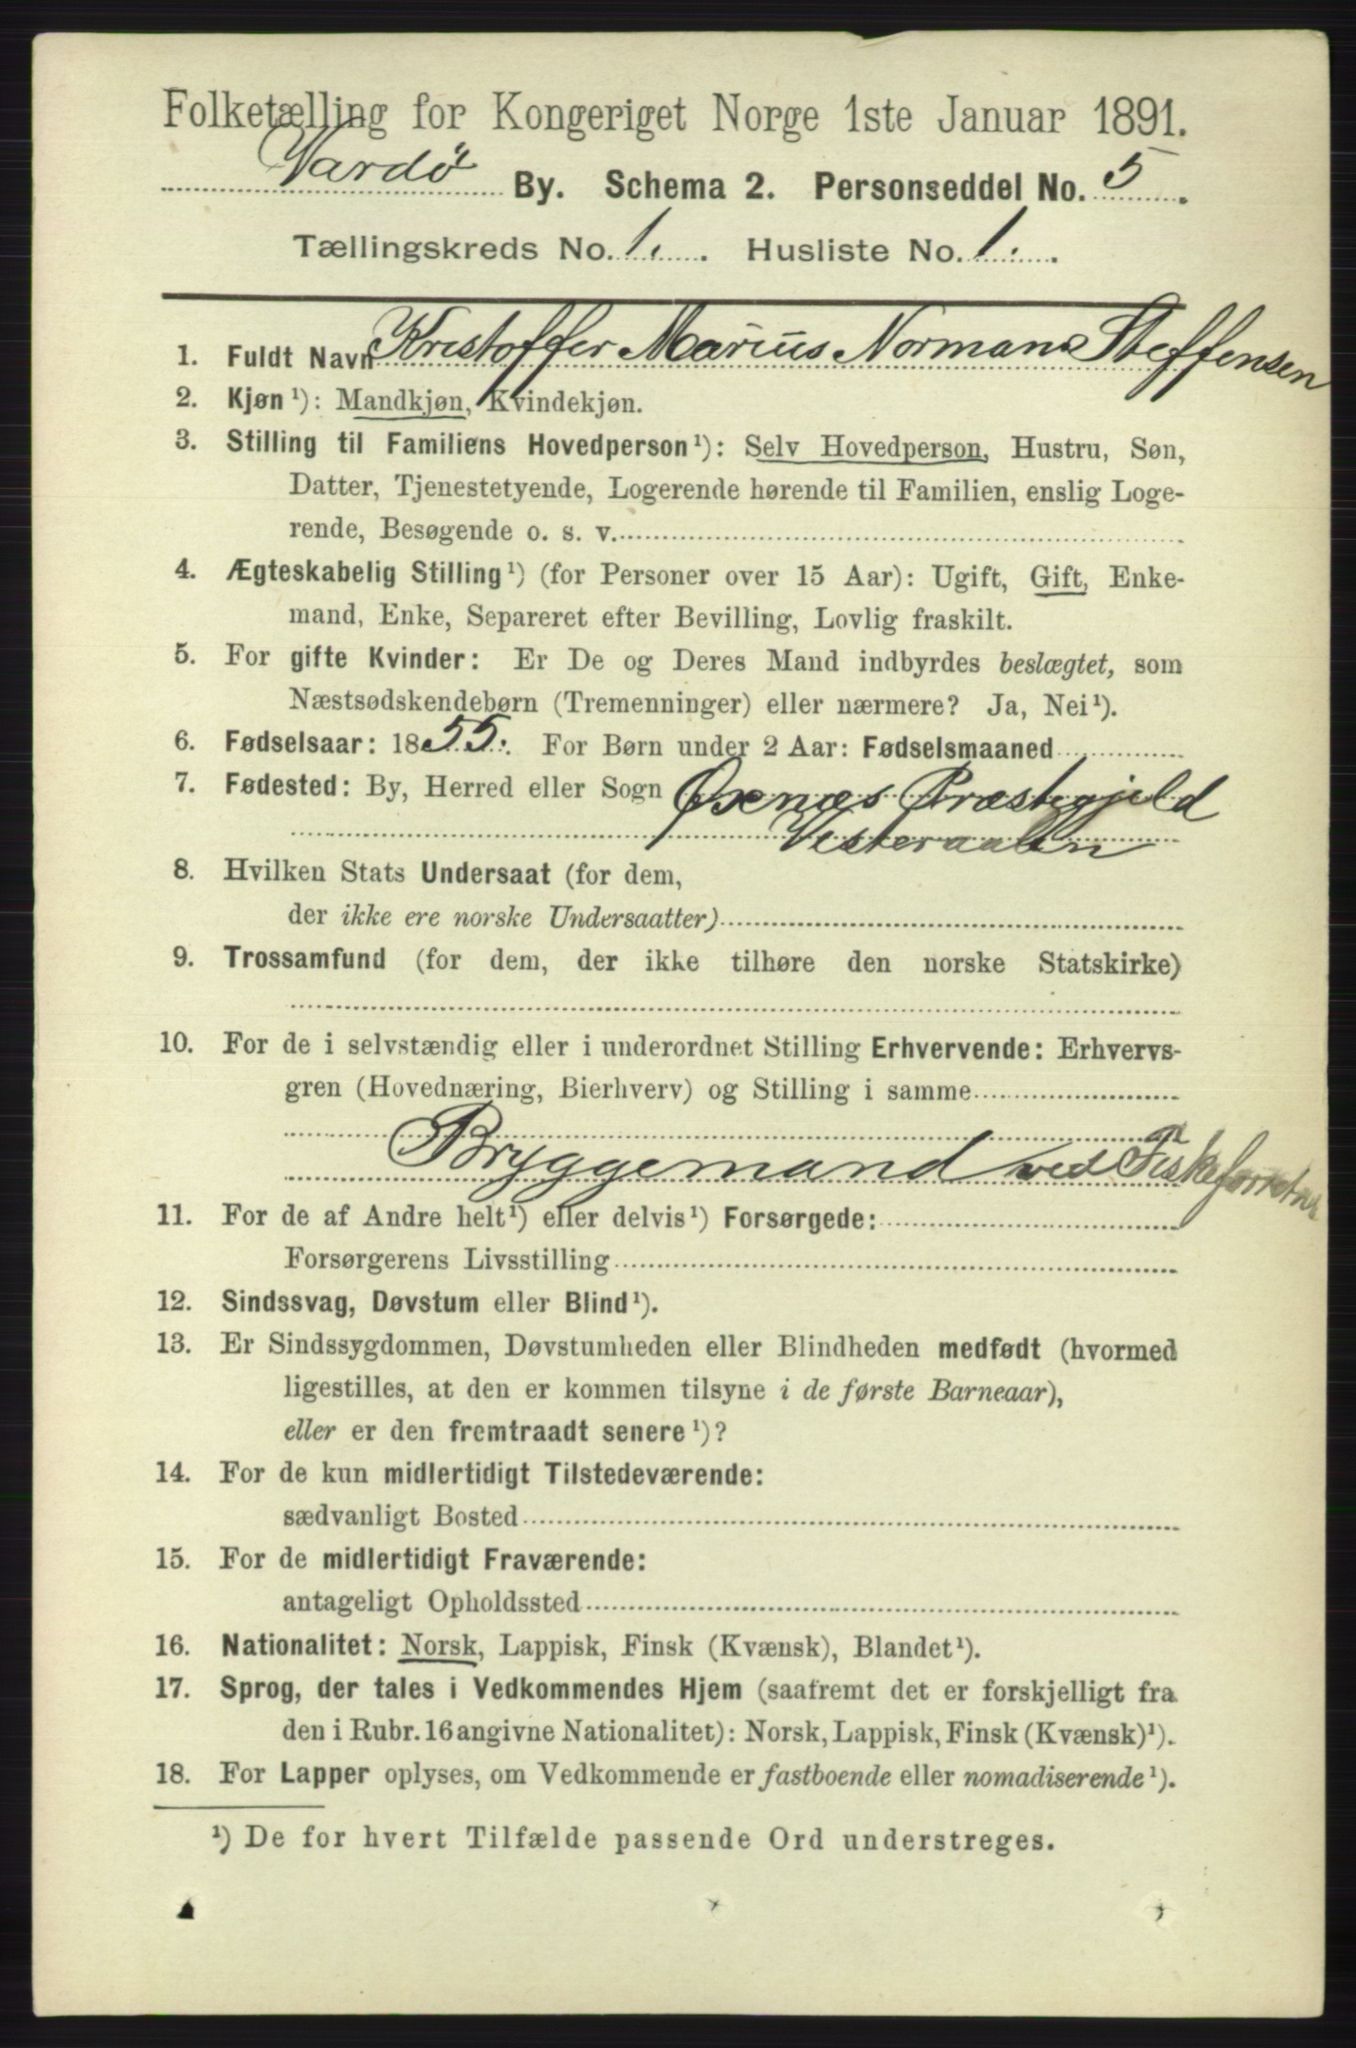 Folketælling for Kongeriget Norge 1ste Januar 1891.
Vardö By. Schema 2. Personseddel No. 5.
Tællingskreds No. 1. Husliste No. 1.
1. Fuldt Navn Kristoffer Marius Normann Steffensen
2. Kjøn¹): Mandkjøn, Kvindekjøn.
3. Stilling til Familiens Hovedperson¹): Selv Hovedperson, Hustru, Søn,
Datter, Tjenestetyende, Logerende hørende til Familien, enslig Loge-
rende, Besøgende o. s. v.
4. Ægteskabelig Stilling¹) (for Personer over 15 Aar): Ugift, Gift, Enke-
mand, Enke, Separeret efter Bevilling, Lovlig fraskilt.
5. For gifte Kvinder: Er De og Deres Mand indbyrdes beslægtet, som
Næstsødskendebørn (Tremenninger) eller nærmere? Ja, Nei¹).
6. Fødselsaar: 1855. For Børn under 2 Aar: Fødselsmaaned
7. Fødested: By, Herred eller Sogn Øxnæs Præstegjeld
Vesteraalen
8. Hvilken Stats Undersaat (for dem,
der ikke ere norske Undersaatter)
9. Trossamfund (for dem, der ikke tilhøre den norske Statskirke)
10. For de i selvstændig eller i underordnet Stilling Erhvervende: Erhvervs-
gren (Hovednæring, Bierhverv) og Stilling i samme
Bryggemand ved Fiskeforretn
11. For de af Andre helt¹) eller delvis¹) Forsørgede:
Forsørgerens Livsstilling
12. Sindssvag, Døvstum eller Blind¹).
13. Er Sindssygdommen, Døvstumheden eller Blindheden medfødt (hvormed
ligestilles, at den er kommen tilsyne i de første Barneaar),
eller er den fremtraadt senere¹)?
14. For de kun midlertidigt Tilstedeværende:
sædvanligt Bosted
15. For de midlertidigt Fraværende:
antageligt Opholdssted
16. Nationalitet: Norsk, Lappisk, Finsk (Kvænsk), Blandet¹).
17. Sprog, der tales i Vedkommendes Hjem (saafremt det er forskjelligt fra
den i Rubr. 16 angivne Nationalitet): Norsk, Lappisk, Finsk (Kvænsk)¹).
18. For Lapper oplyses, om Vedkommende er fastboende eller nomadiserende¹).
¹) De for hvert Tilfælde passende Ord understreges.